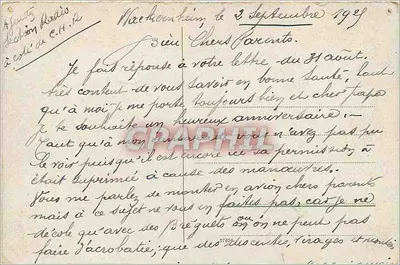 Wackernheim, le 2 Septembre 1929
section Radio
à côté de C.H.R
Bien Chers Parents.
Je fais réponse à votre lettre du 31 août,
très content de vous savoir en bonne santé, tant
qu'à moi je me porte toujours bien et cher papa
je te souhaite un heureux anniversaire :-
Tant qu'à mon vous n'avez pas pu
le voir puisqu'il est encore ici sa permission a
était suprimée à cause des manœuvres.
Vous me parlez de monter en avion chers parents
mais à ce sujet ne vous en faites pas, car je ne
décole qu'avec des Bréguets ou on ne peut pas
faire d'acrobatie; que des descentes, virages et montées
GRAPHIL